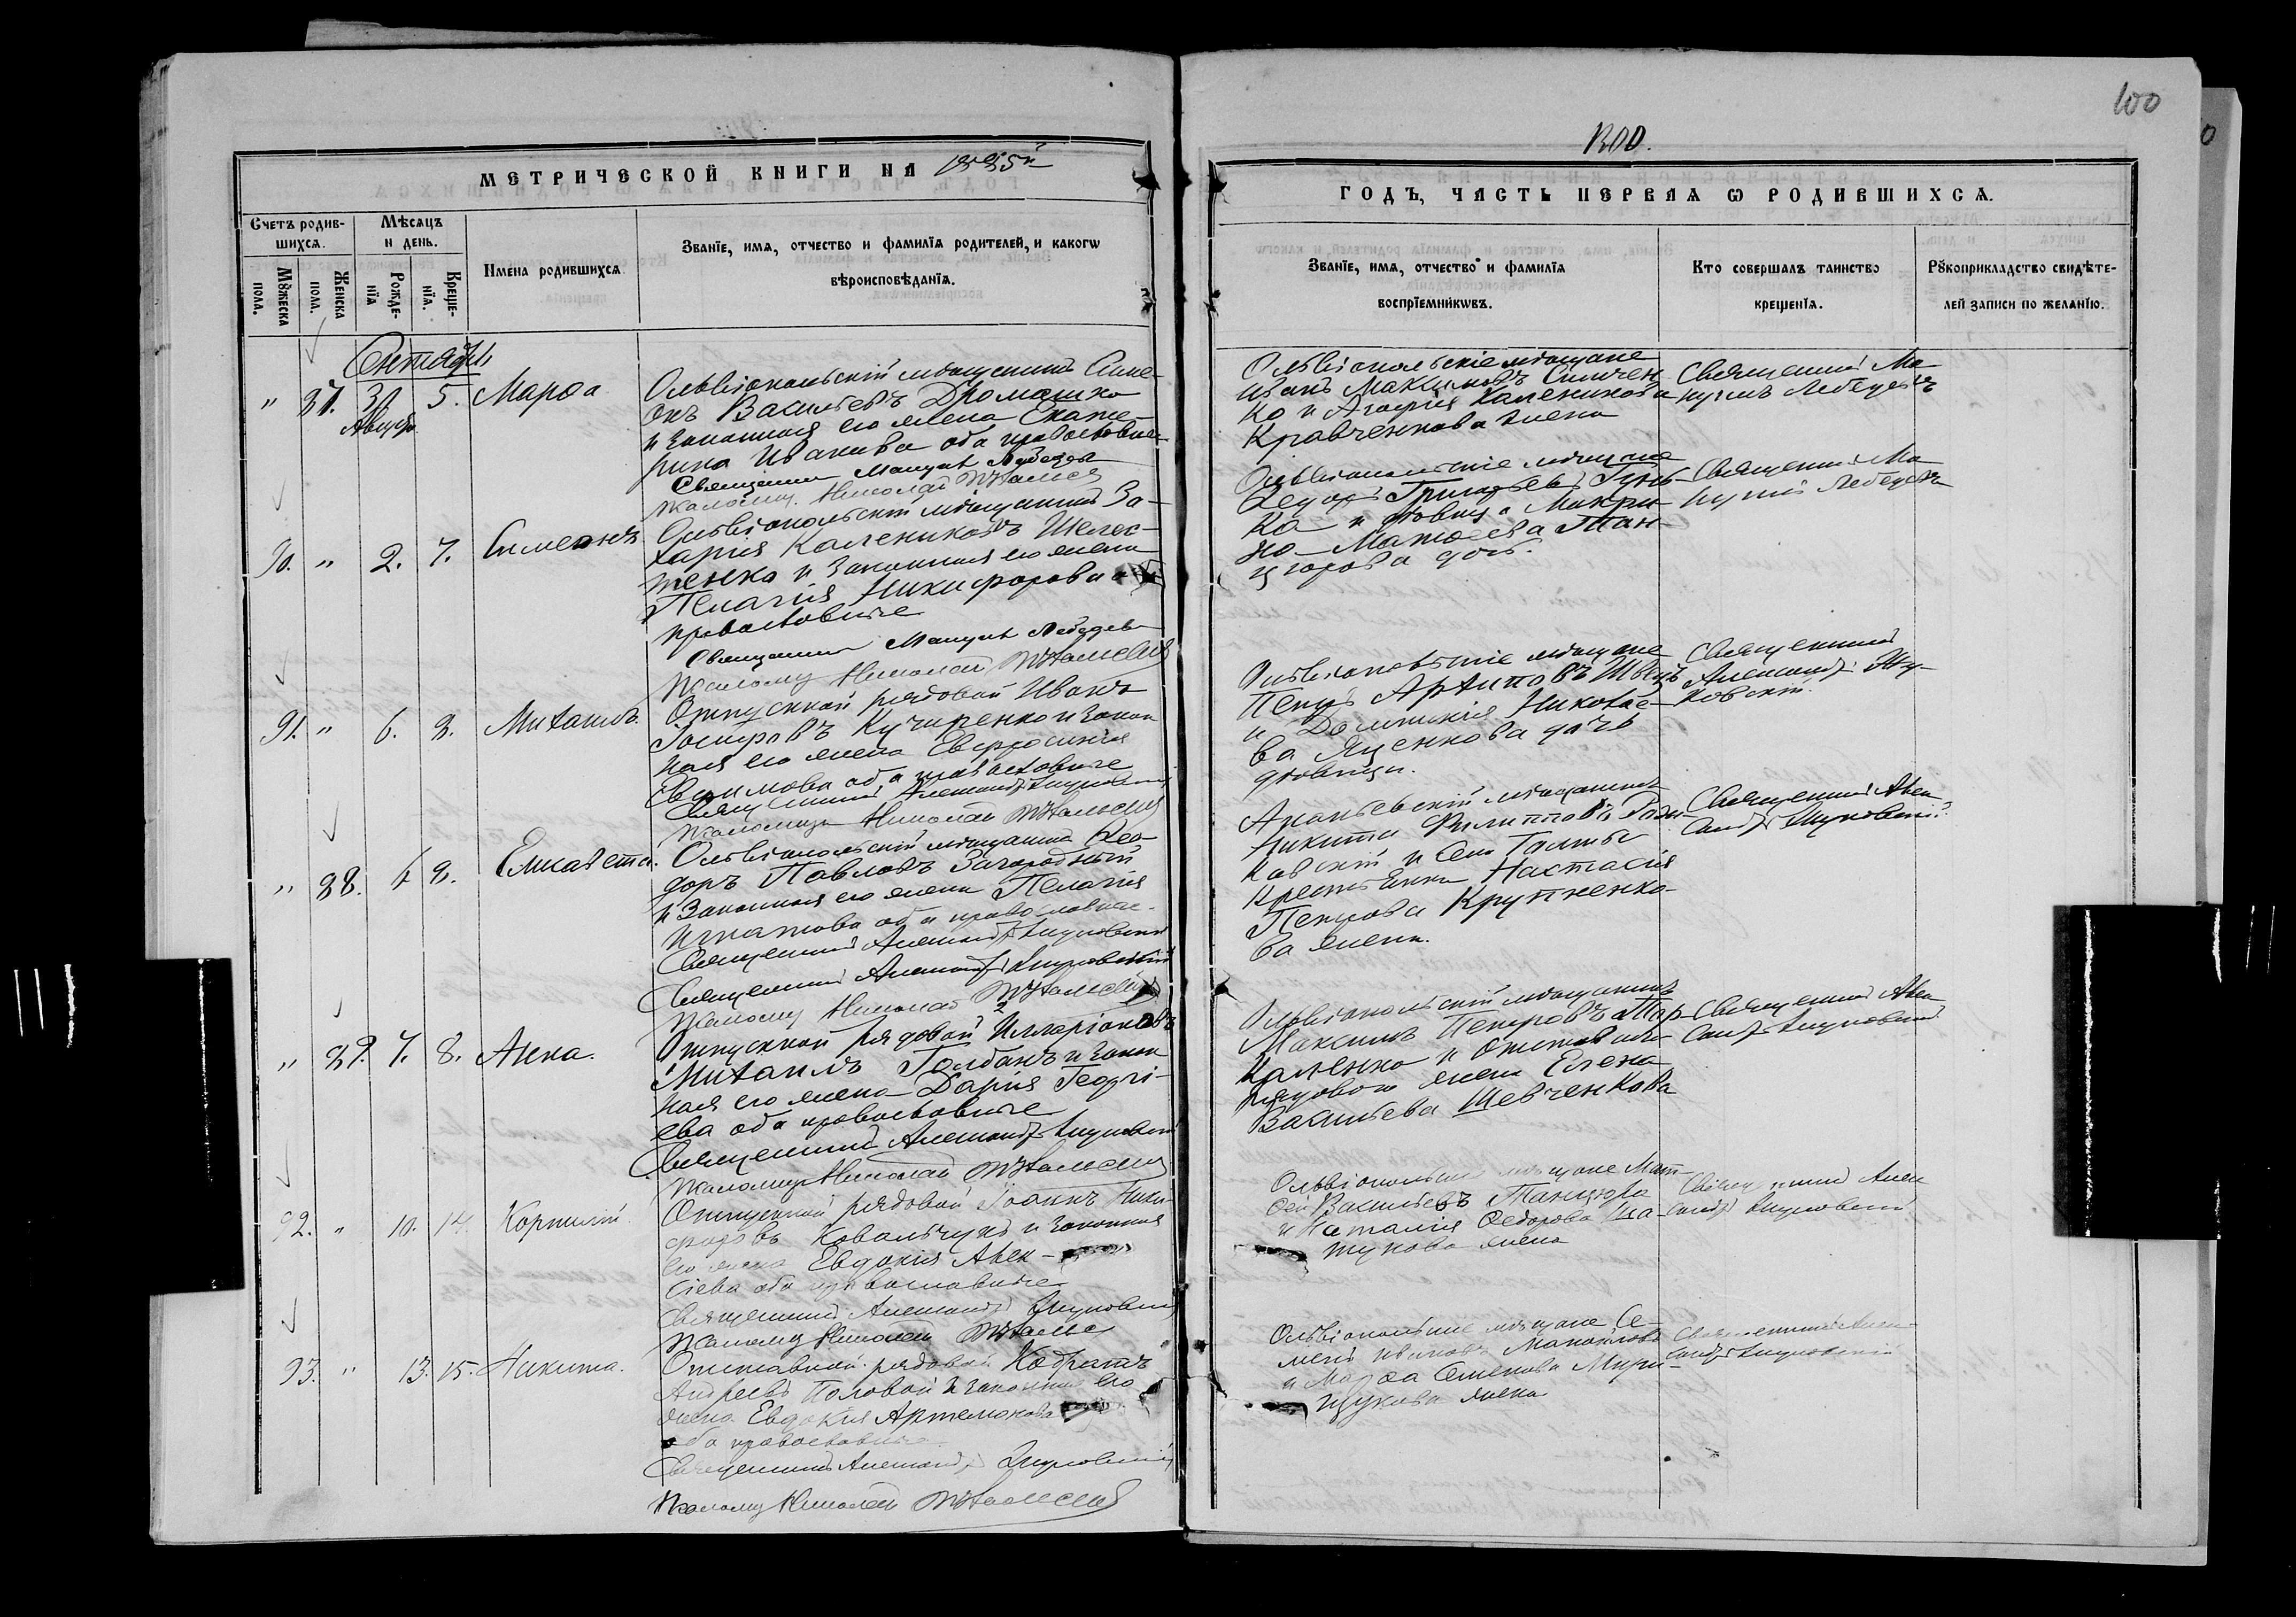 100
МЕТРИЧЕСКОЙ КНИГИ НА 1885й
Счетъ родив-
шихсѧ.
Мѣсѧцъ
и день.
Мꙋжеска
пола.
Женска
пола.
Рожде-
нїѧ
Креще-
нїѧ.
Имена родившихсѧ
Званїе, имѧ, отчество и фамилїѧ родителей, и какогѡ
вѣроисповѣданїѧ.
Сентябрь
" 87. 31 5. Марѳа
Ольвіопольскій мѣщанинъ Симе-
онъ Васильевъ Дромашко
и законная его жена Екате-
рина Иванова оба православные
Священникъ
Псаломщ. Николай
90. " 2. 7. Симеонъ
Ольвіопольскій мѣщанинъ За-
харія Калениковъ Шелес-
тенко и законная его жена
Пелагія Никифорова
православные
Священникъ
Псаломщ Николай
91. " 6. 8. Михаилъ.
Отпускной рядовой Иванъ
Іосифовъ Кучеренко и закон
ная его жена Евфросинія
Ефимова оба православные
Священникъ Александръ
Псаломщ Николай
" 88. 6 8. Елисавета.
Ольвіопольскій мѣщанинъ Ѳео-
доръ Павловъ Загородный
и законная его жена Пелагія
Игнатова оба православные.
Священникъ Александръ
Священникъ Александръ
Псаломщ Николай
" 89. 7. 8. Анна.
Отпускной рядовой Илларіоновъ
Михаилъ Голбанъ и закон
ная его жена Дарія Георгі-
ева оба православные
Священникъ Александръ
Псаломщ Николай
92. " 10. 14. Корнилій
Отпускной рядовой Іоаннъ Ники-
форовъ Ковальчукъ и законная
его жена Евдокія Алек-
сіева оба православные
Священникъ Александръ
Псаломщ Николай
93. " 13. 15. Никита.
Отставной рядовой Кодратъ
Андреевъ Половой и законная его
жена Евдокія Артемонова
оба православные.
Священникъ Александръ
Псаломщ Николай
ГОДЪ, ЧАСТЬ ПЕРВАѦ Ѡ РОДИВШИХСѦ.
Званїе, имѧ, отчество и фамилїѧ
воспрїемникѡвъ.
Кто совершалъ таинство
крещенїѧ.
Рꙋкоприкладство свидѣте-
лей записи по желанїю.
Ольвіопольскіе мѣщане
Иванъ Максимовъ Синчен
ко и Агафія Каленикова
Кравченкова жена
Священникъ Ма
нуилъ Лебедевъ
Ольвіопольскіе мѣщане
Ѳедоръ Григорьевъ Гунь-
ка и вдовица Макри-
на Матѳеева Тан-
цюрова дочь.
Священникъ Ма
нуилъ Лебедевъ
Ольвіопольскіе мѣщане
Петръ Архиповъ Швецъ
и Домникія Николае-
ва Яценкова дочь
дѣвица.
Священникъ
Александръ
Ананьевскій мѣщанинъ
Никита Филипповъ
и села Голты
крестьянка Настасія
Петрова Крупченко-
ва жена.
Священникъ Алек
сандръ
Ольвіопольскій мѣщанинъ
Максимъ Петровъ Пар-
каленко и отставнаго
рядового жена Елена
Васильева Шевченкова
Священникъ Алек
сандръ
Ольвіопольскіе мѣщане Мат-
ѳей Васильевъ Танцюра
и Наталія Ѳедорова Ша-
тукова жена
Священникъ Алек
сандръ
Ольвіопольскіе мѣщане Се-
менъ Ивановъ Манойловъ
и Марѳа Семенова Мири-
щукова жена
Священникъ Алек-
сандръ